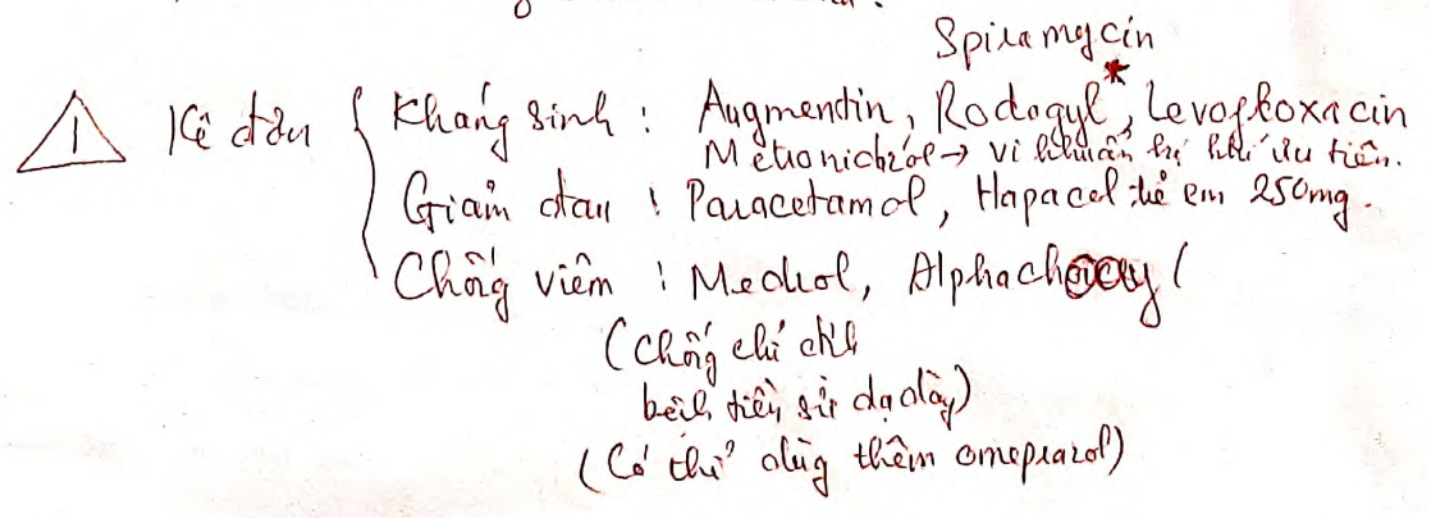 Spiramycin
! Kê đơn { Kháng sinh : Augmentin, Rodogyl*, Levofloxacin
Metronidazol → vi khuẩn kị khí ưu tiên.
Giảm đau : Paracetamol, Hapacol trẻ em 250mg.
Chống viêm : Medrol, Alphachoay (
(Chống chỉ định
bệnh tiền sử dạ dày)
(Có thể dùng thêm omeprazol)